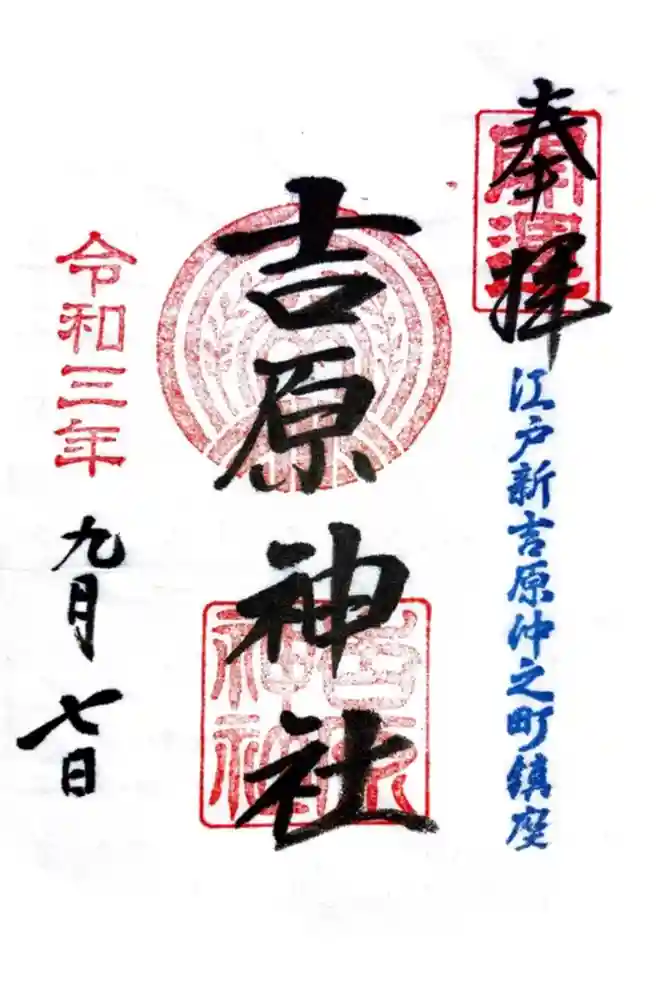 奉拝
開運
江戸新吉原仲之町鎮座
吉原神社
令和三年
九月七日